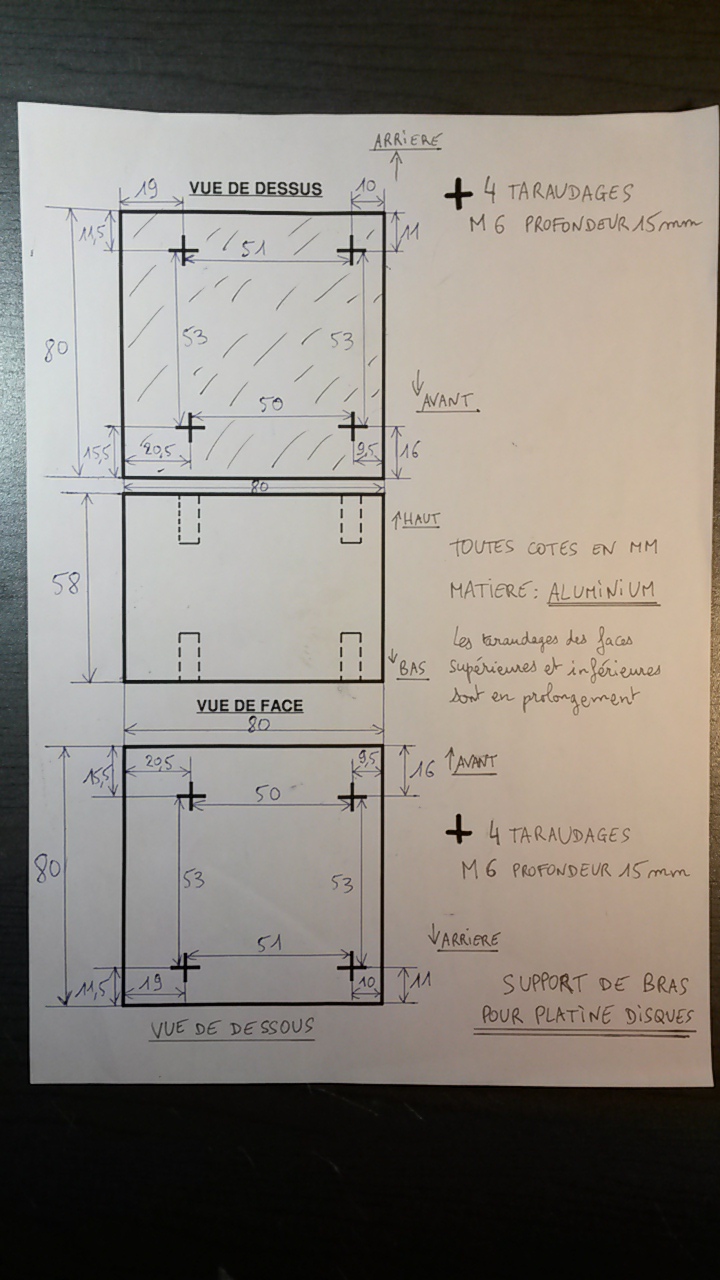 ARRIERE
19
VUE DE DESSUS
10
+ 4 TARAUDAGES
M6 PROFONDEUR 15mm
11,5
51
11
80
53
53
50
AVANT
15,5
20,5
9,5
16
80
HAUT
58
TOUTES COTES EN MM
MATIERE: ALUMINIUM
Les taraudages des faces
supérieures et inférieures
sont en prolongement
BAS
VUE DE FACE
80
15,5
20,5
9,5
16
AVANT
50
+ 4 TARAUDAGES
M6 PROFONDEUR 15mm
80
53
53
51
ARRIERE
11,5
19
10
11
VUE DE DESSOUS
SUPPORT DE BRAS
POUR PLATINE DISQUES